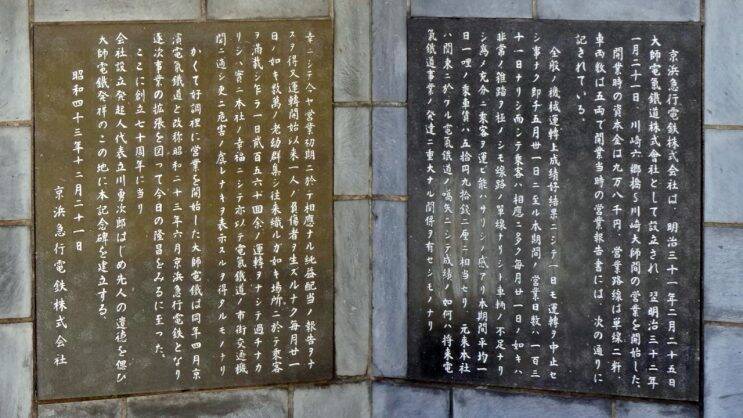 京浜急行電鉄株式会社は、明治三十一年二月二十五日
大師電氣鐵道株式會社として設立され 翌明治三十二年
一月二十一日、川崎六郷橋〜川崎大師間の営業を開始した。
開業時の資本金は九万八千円、営業路線は単線二粁、
車両数は五両で開業当時の営業報告書には、次の通りに
記されている。
全般ノ機械運轉上成績好結果ニシテ一日モ運轉ヲ中止セ
シ事ナク即チ五月卅一日ニ至ル本期間ノ営業日数ハ一百三
十一日ナリシ而シテ乗客ハ相應ニ多ク毎月廿一日ノ如キハ
非常ノ雑踏ヲ極ノシモ線路ノ單線ナリシト車輌ノ不足ナリ
シ為ノ充分ニ乗客ヲ運ビ能ハサリシノ感アリ本期間平均一
日一哩ノ乗車賃ハ五拾円九拾銭二厘ニ相当セリ 元来本社
ハ関東ニ於ケル電氣鐵道ノ嚆矢ニシテ成績ノ如何ハ将来電
氣鐵道事業ノ発達ニ重大ナル関係ヲ有セシモノナリ
幸ニシテ今ヤ営業初期ニ於テ相應ナル純益配当ノ報告ヲナ
スヲ得又運轉開始以来一人ノ負傷者ヲ生ズルナク毎月廿一
日ノ如キ数萬ノ老幼群集シ往来織ルガ如キ場所ニ於テ乗客
ヲ満載シ乍ラ一日貳百五六十回余ノ運轉ヲナシテ過チナカ
リシハ實ニ本社ノ幸福ニシテ亦以テ電氣鐵道ノ市街交通機
関ニ適シ更ニ危害ノ虞レナキヲ表示スルヲ得タルモノナリ
かくて好調裡に営業を開始した大師電鐵は同年四月京
濱電氣鐵道と改称昭和二十三年六月京浜急行電鉄となり
逐次事業の拡張を図って今日の隆昌をみるに至った。
ここに創立七十周年に当り
会社設立発起人代表立川勇次郎はじめ先人の遺徳を偲び
大師電鐵発祥のこの地に本記念碑を建立する。
昭和四十三年十二月二十一日
京浜急行電鉄株式会社